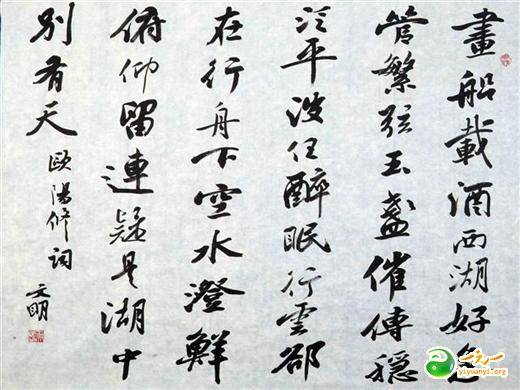 畫船載酒西湖好急
管繁弦玉盞催傳穩
泛平波任醉眠行雲郤
在行舟下空水澄鮮
俯仰留連疑是湖中
別有天
歐陽修詞
文明
一元一
yiyuanyi.org